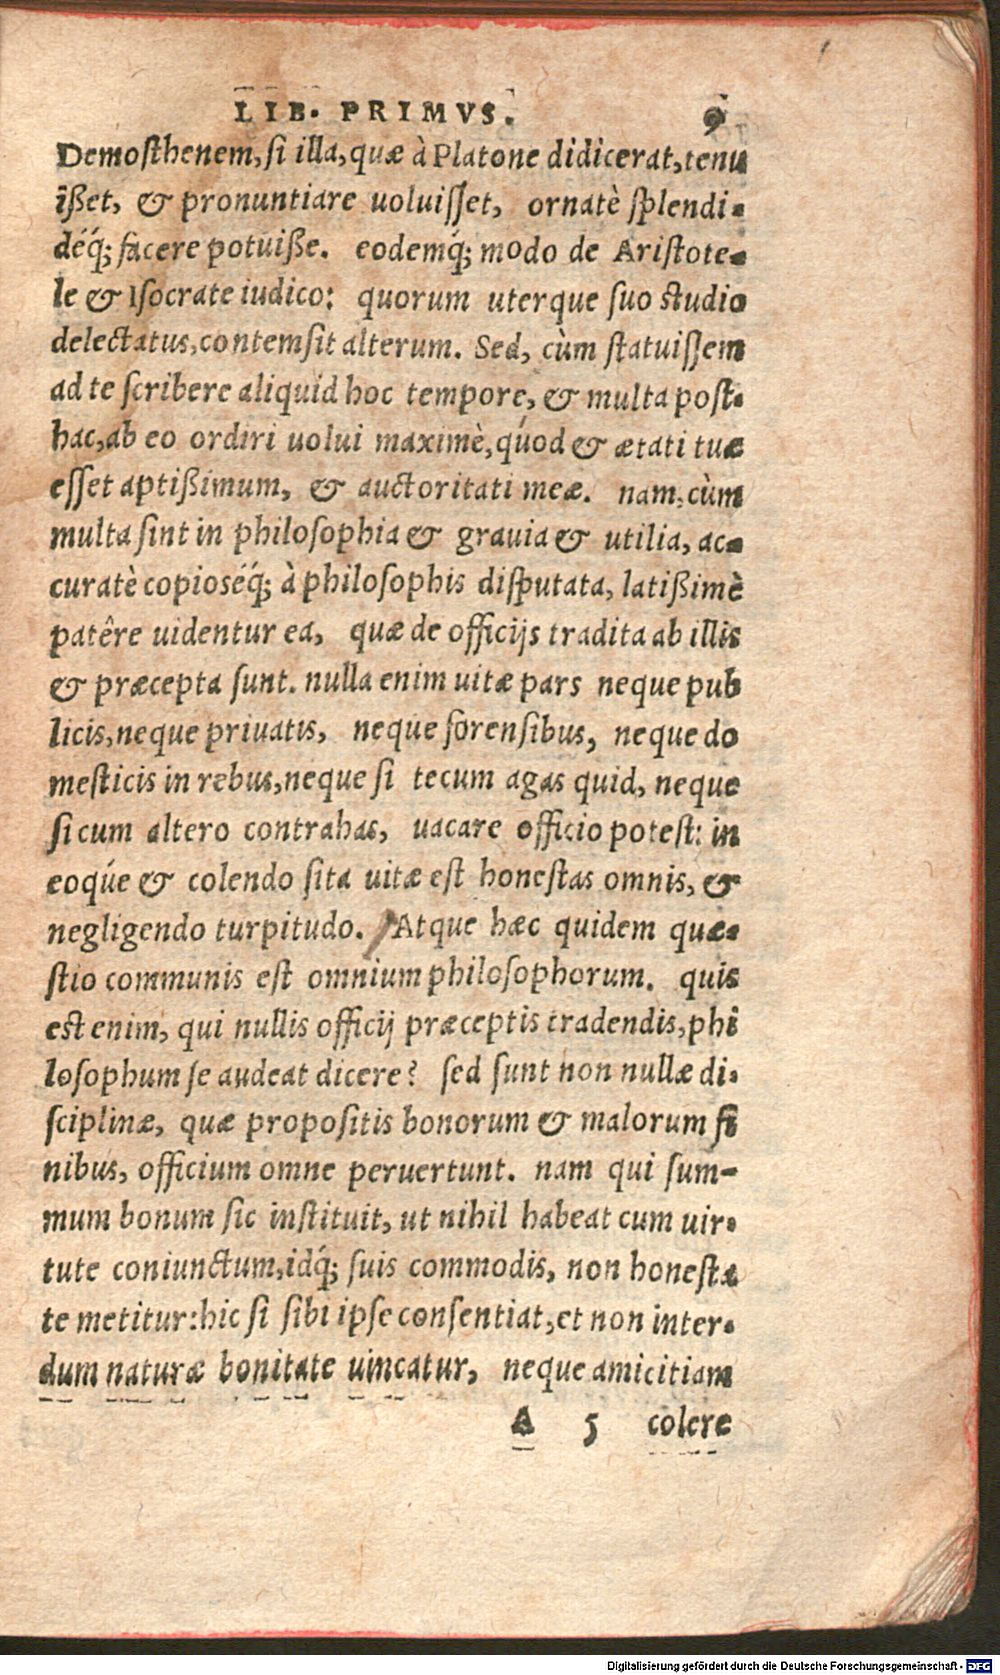 LIB. PRIMVS. 9
Demosthenem, si illa, quæ à Platone didicerat, tenu
ißet, & pronuntiare uoluisset, ornatè splendi-
déq́; facere potuiße. eodemq́; modo de Aristote-
le & Isocrate iudico: quorum uterque suo studio
delectatus, contemsit alterum. Sed, cùm statuissem
ad te scribere aliquid hoc tempore, & multa post-
hac, ab eo ordiri uolui maximè, quod & ætati tuæ
esset aptißimum, & auctoritati meæ. nam, cùm
multa sint in philosophia & grauia & utilia, ac-
curatè copioséq́; à philosophis disputata, latißimè
patêre uidentur ea, quæ de officijs tradita ab illis
& præcepta sunt. nulla enim uitæ pars neque pub
licis, neque priuatis, neque forensibus, neque do
mesticis in rebus, neque si tecum agas quid, neque
si cum altero contrahas, uacare officio potest: in
eoq́ue & colendo sita uitæ est honestas omnis, &
negligendo turpitudo. Atque hæc quidem quæ-
stio communis est omnium philosophorum. quis
est enim, qui nullis officij præceptis tradendis, phi
losophum se audeat dicere? sed sunt non nullæ di-
sciplinæ, quæ propositis bonorum & malorum fi
nibus, officium omne peruertunt. nam qui sum-
mum bonum sic instituit, ut nihil habeat cum uir-
tute coniunctum, idq́; suis commodis, non honesta
te metitur: hic si sibi ipse consentiat, et non inter-
dum naturæ bonitate uincatur, neque amicitiam
A 5 colere
Digitalisierung gefördert durch die Deutsche Forschungsgemeinschaft - DFG